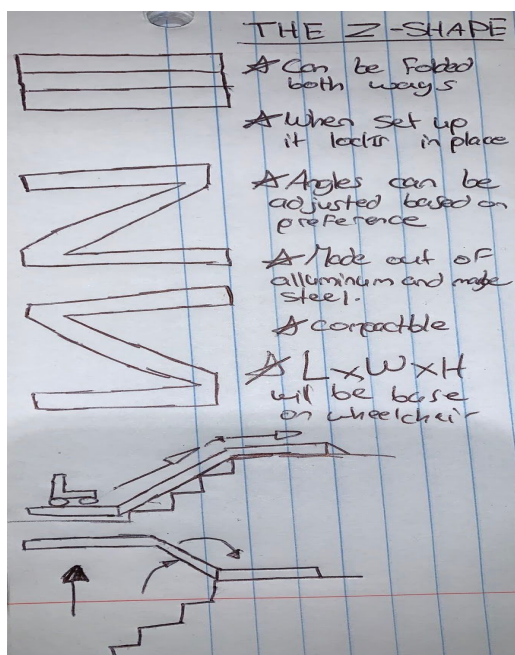 THE Z-SHAPE
☆ Can be folded
both ways
☆ When set up
it locks in place
☆ Angles can be
adjusted based on
preference
☆ Made out of
alluminum and
steel.
☆ compactble
☆ L×W×H
will be base
on wheelchair